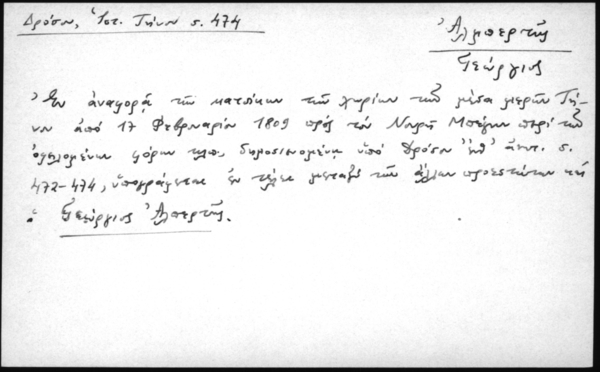 Δρόσου, Ἱστ. Τήνου σ. 474
Ἀλμπέρτης
Γεώργιος
Ἐν ἀναφορᾷ τῶν κατοίκων τῶν χωρίων τῶν μέσα μερῶν Τή-
νου ἀπό 17 Φεβρουαρίου 1809 πρός τόν Μπέην περί τῶν
ὀφειλομένων φόρων κλπ. δημοσιευομένῃ ὑπό Δρόσου ἔνθ' ἀνωτ. σ.
472-474, ὑπογράφεται ἐν τέλει μεταξύ τῶν ἄλλων προεστώτων καί
ὁ Γεώργιος Ἀλπερτῆς.